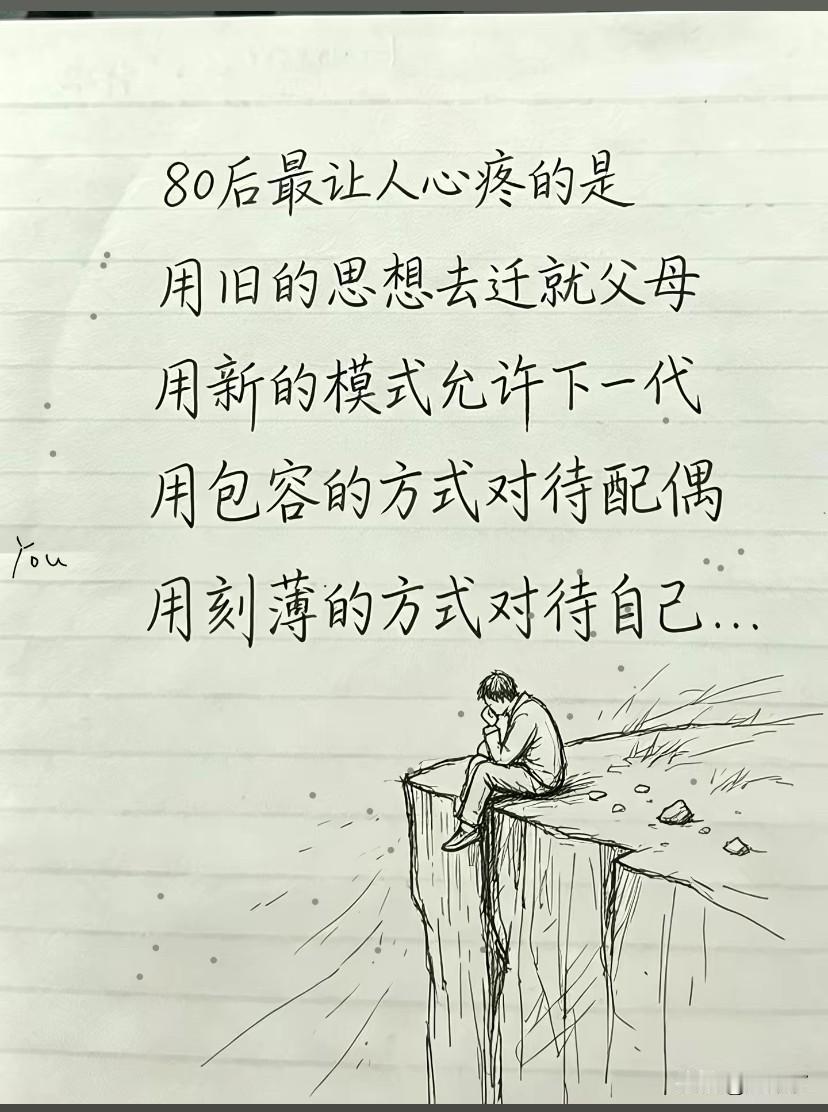 80后最让人心疼的是
用旧的思想去迁就父母
用新的模式允许下一代
用包容的方式对待配偶
You
用刻薄的方式对待自己...